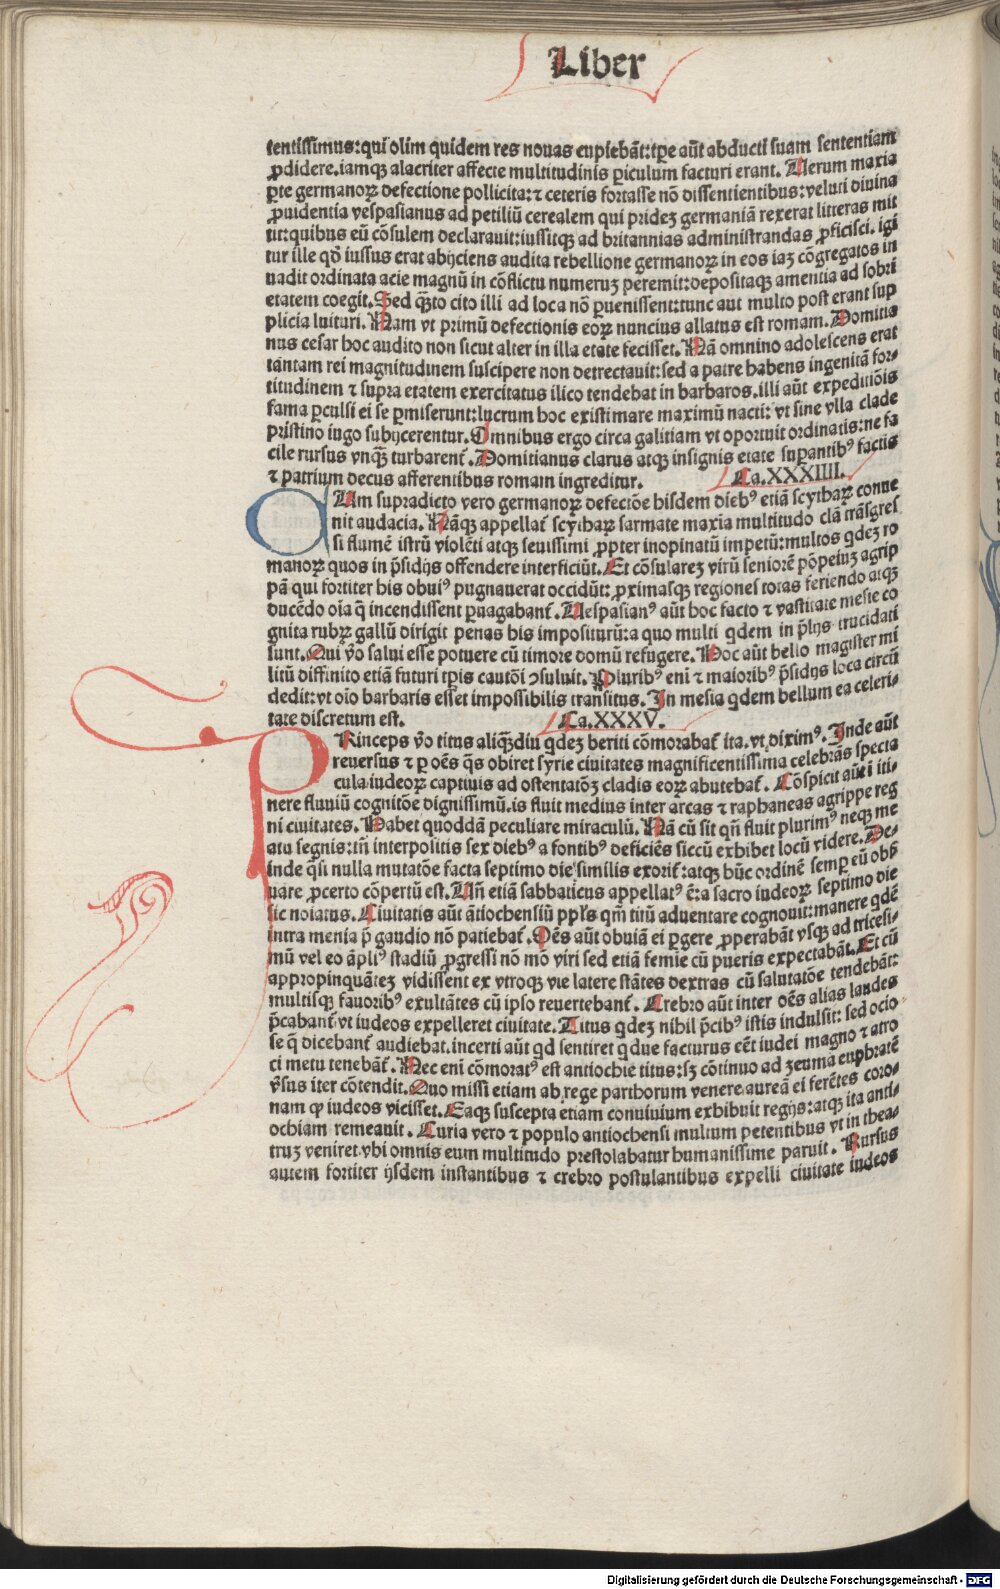 Liber
tentissimus: qui olim quidem res nouas cupiebāt: tꝑe aūt abducti suam sententiam
ꝓdidere. iamqꝫ alacriter affecte multitudinis ꝑiculum facturi erant. Uerum maxia
ꝑte germanoꝝ defectione pollicita: ⁊ ceteris fortasse nō dissentientibus: veluti diuina
ꝓuidentia vespasianus ad petiliū cerealem qui pridez germaniā rexerat litteras mit
tit: quibus eū cōsulem declarauit: iussitqꝫ ad britannias administrandas ꝓficisci. igi
tur ille qđ iussus erat abijciens audita rebellione germanoꝝ in eos iaz cōgregatos in
uadit ordinata acie magnū in cōflictu numeruz peremit: depositaqꝫ amentia ad sobri
etatem coegit. Sed qꝫto cito illi ad loca nō ꝑuenissent: tunc aut multo post erant sup
plicia luituri. Nam vt primū defectionis eoꝝ nuncius allatus est romam. Domitia
nus cesar hoc audito non sicut alter in illa etate fecisset. Nā omnino adolescens erat
tantam rei magnitudinem suscipere non detrectauit: sed a patre habens ingenitā for⸗
titudinem ⁊ supra etatem exercitatus ilico tendebat in barbaros. illi aūt expeditiōis
fama ꝑculsi ei se ꝑmiserunt: lucrum hoc existimare maximū nacti: vt sine vlla clade
pristino iugo subijcerentur. Omnibus ergo circa galitiam vt oportuit ordinatis: ne fa
cile rursus vnqꝫ turbarent̄. Domitianus clarus atqꝫ insignis etate suꝑantibꝰ factis
⁊ patrium decus afferentibus romam ingreditur. Ca.XXXIIII.
CUm supradicto vero germanoꝝ defectōe hisdem diebꝰ etiā scytharꝝ conue
nit audacia. Nāqꝫ appellat̄ scytharꝝ sarmate maxia multitudo clā trāsgres
si flumē istrū violēti atqꝫ seuissimi ꝓpter inopinatū impetū: multos qdez ro
manoꝝ quos in p̄sidijs offendere interficiūt. Et cōsularez virū seniorē pōpeiuz agrip
pā qui fortiter his obuiꝰ pugnauerat occidūt: ꝓximasqꝫ regiones totas feriendo atqꝫ
ducēdo oīa q̄ incendissent ꝑuagabant̄. Uespasianꝰ aūt hoc facto ⁊ vastitate mesie co
gnita rubꝝ gallū dirigit penas his impositurū: a quo multi qdem in p̄lijs trucidati
sunt. Qui v̄o salui esse potuere cū timore domū refugere. Hoc aūt bello magister mi
litū diffinito etiā futuri tꝑis cautōi ꝯsuluit. Pluribꝰ eni ⁊ maioribꝰ p̄sidijs loca circū
dedit: vt oīo barbaris esset impossibilis transitus. In mesia qdem bellum ea celeri⸗
tate discretum est. Ca.XXXV.
PRinceps v̄o titus aliqꝫdiu qdez beriti cōmorabat̄ ita. vt diximꝰ. Inde aūt
reuersus ⁊ ꝑ oēs q̄s obiret syrie ciuitates magnificentissima celebrās specta
cula iudeoꝝ captiuis ad ostentatōz cladis eoꝝ abutebat̄. Cōspicit aūt ī iti⸗
nere fluuiū cognitōe dignissimū. is fluit medius inter arcas ⁊ raphaneas agrippe reg
ni ciuitates. Habet quoddā peculiare miraculū. Nā cū sit qn̄ fluit plurimꝰ neqꝫ me
atu segnis: tn̄ interpolitis sex diebꝰ a fontibꝰ deficiēs siccū exhibet locū videre. De⸗
inde q̄si nulla mutatōe facta septimo die similis exorit̄: atqꝫ hūc ordinē semꝑ eū obẜ
uare ꝓcerto cōpertū est. Un̄ etiā sabbaticus appellatꝰ ē: a sacro iudeoꝝ septimo die
sic noīatus. Ciuitatis aūt ātiochensiū ppl̄s qm̄ titū aduentare cognouit: manere qdē
intra menia p̄ gaudio nō patiebat̄. Oēs aūt obuiā ei ꝑgere ꝓperabāt vsqꝫ ad tricesi⸗
mū vel eo āpliꝰ stadiū ꝓgressi nō mō viri sed etiā femie cū pueris expectabāt. Et cū
appropinquātez vidissent ex vtroqꝫ vie latere stātes dextras cū salutatōe tendebāt:
multisqꝫ fauoribꝰ exultātes cū ipso reuertebant̄. Crebro aūt inter oēs alias laudes
p̄cabant̄ vt iudeos expelleret ciuitate. Titus qdez nihil p̄cibꝰ istis indulsit: sed ocio
se q̄ dicebant̄ audiebat. incerti aūt qd sentiret qdue facturus eēt iudei magno ⁊ atro
ci metu tenebāt̄. Nec eni cōmoratꝰ est antiochie titus: sꝫ cōtinuo ad zeuma euphratē
v̄sus iter cōtendit. Quo missi etiam ab rege parthorum venere aureā ei ferētes coro⸗
nam ꝙ iudeos vicisset. Eaqꝫ suscepta etiam conuiuium exhibuit regijs: atqꝫ ita anti⸗
ochiam remeauit. Curia vero ⁊ populo antiochensi multum petentibus vt in thea⸗
truz veniret. vbi omnis eum multitudo prestolabatur humanissime paruit. Rursus
autem fortiter ijsdem instantibus ⁊ crebro postulantibus expelli ciuitate iudeos
Digitalisierung gefördert durch die Deutsche Forschungsgemeinschaft - DFG